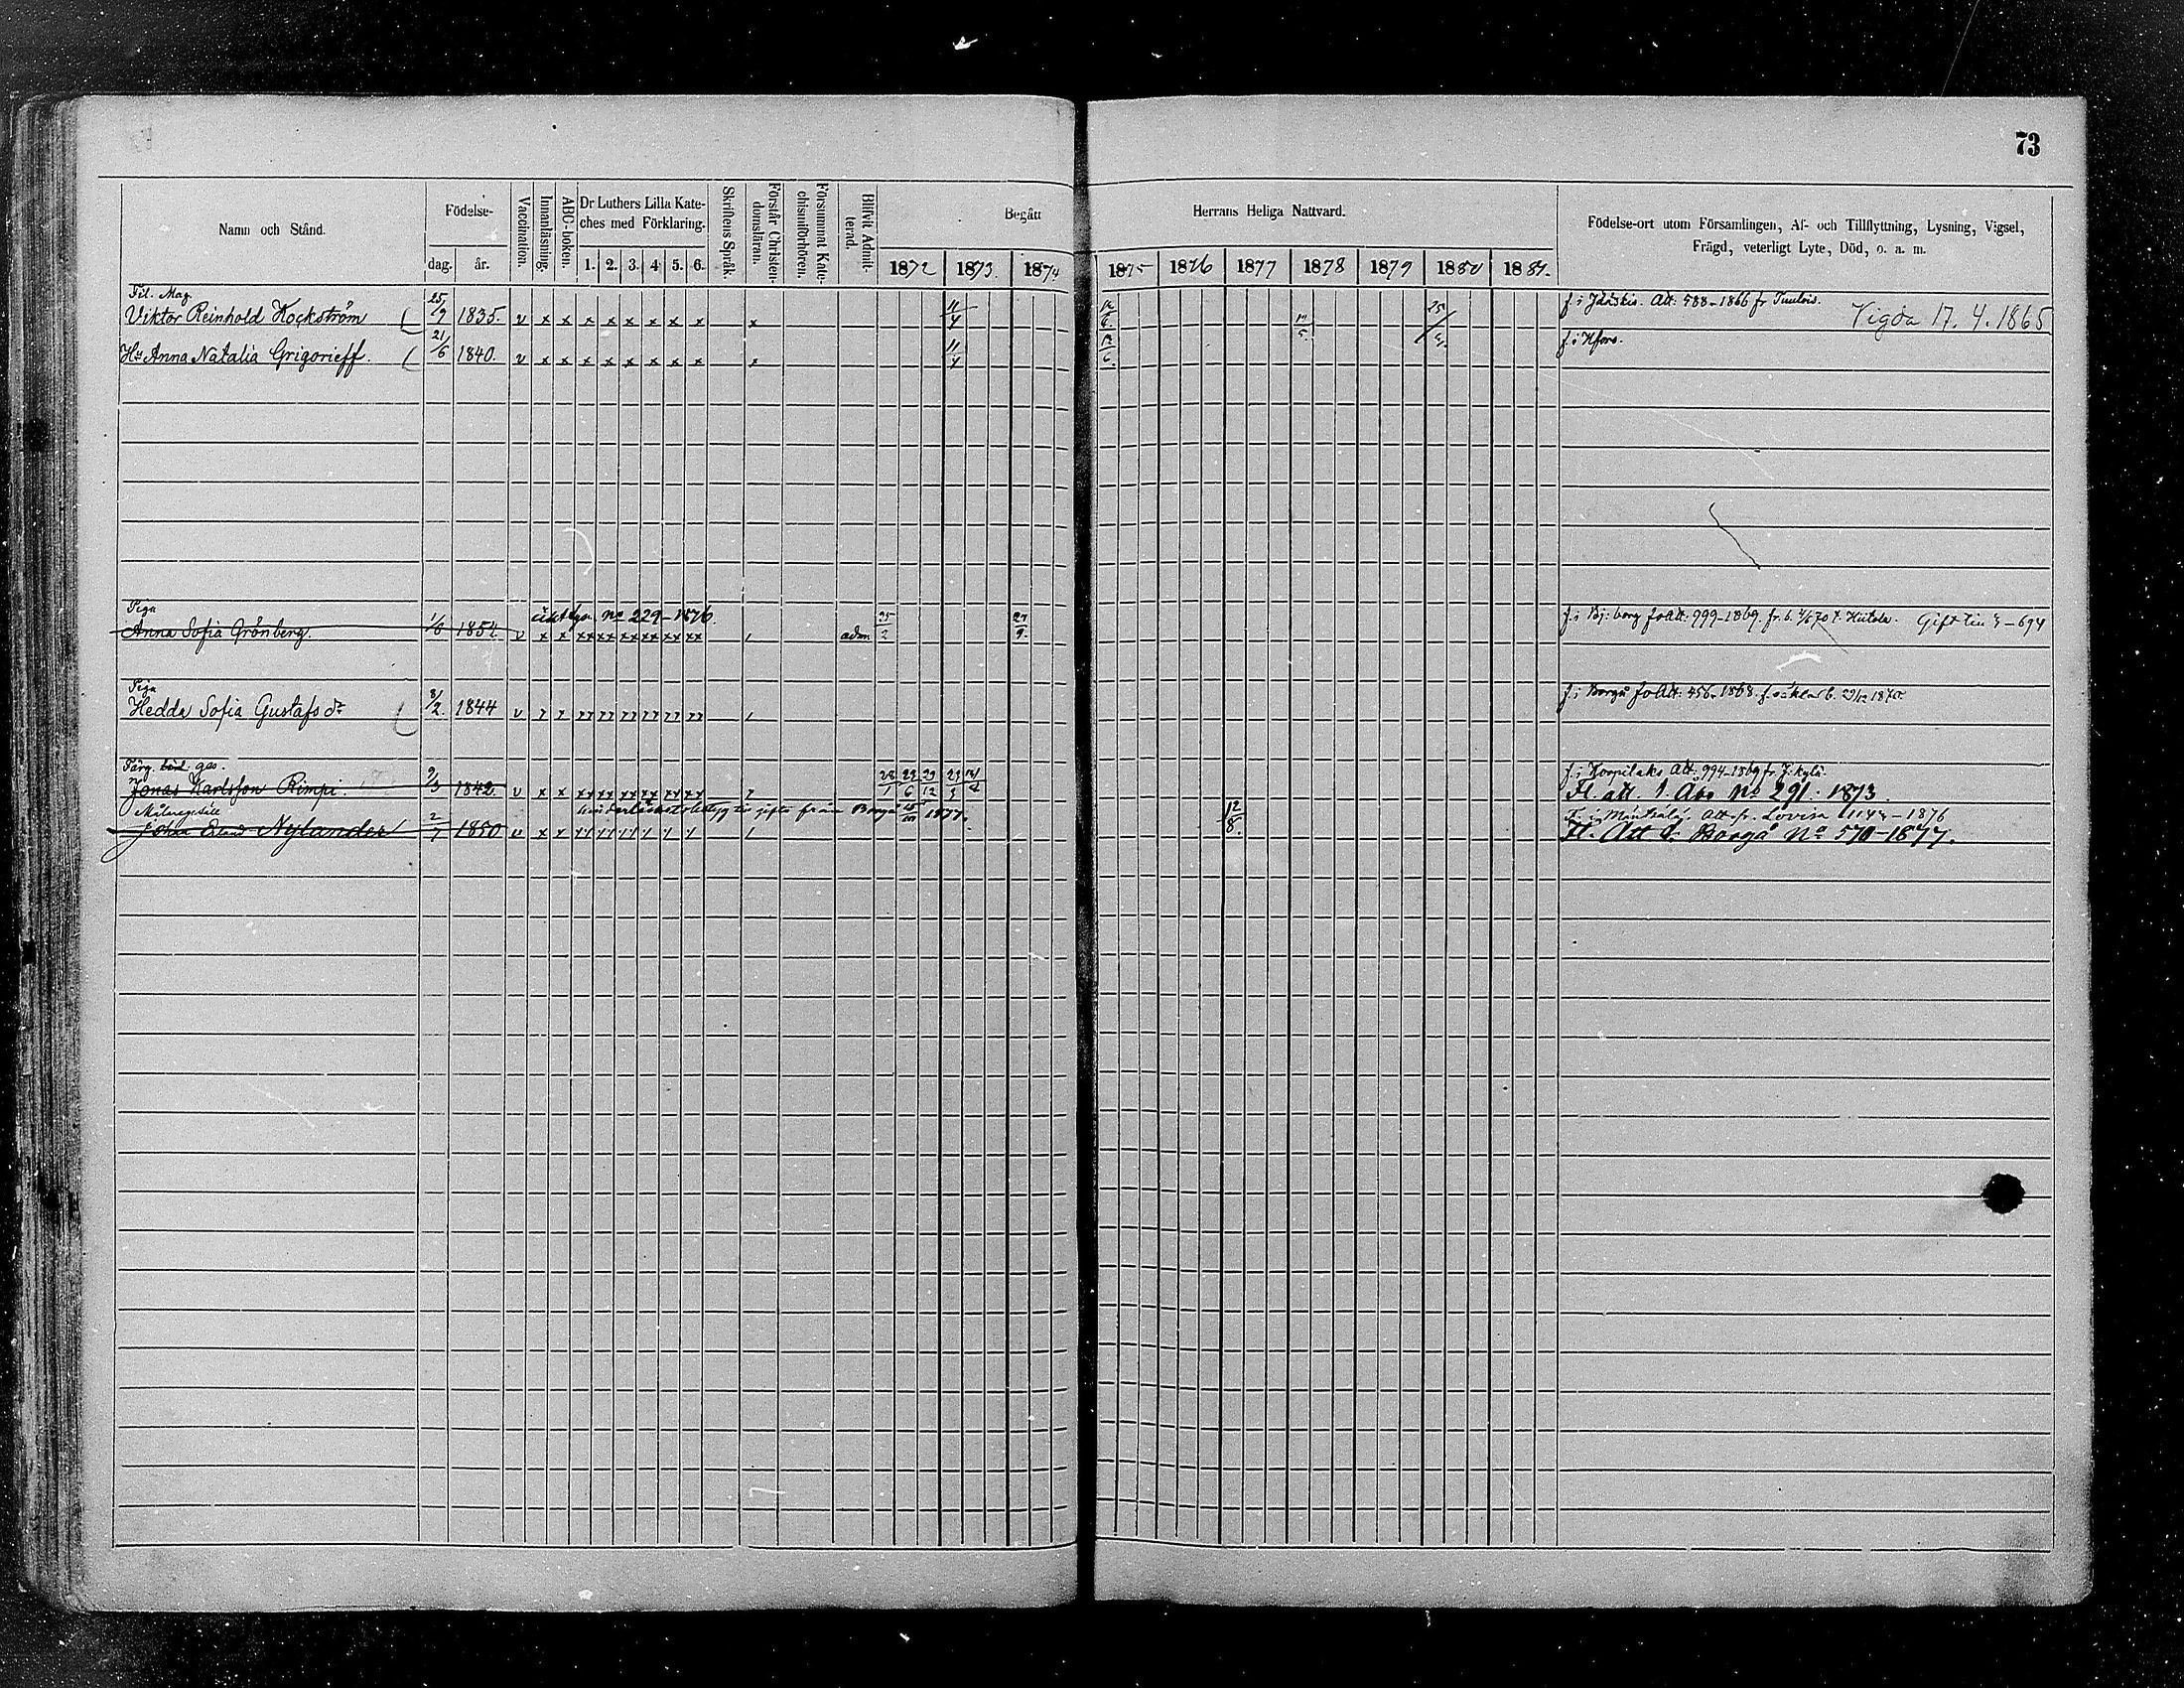 73
Namn och Stånd.
Födelse-
dag. år.
Vaccination.
Innanläsning.
ABC-boken.
Dr Luthers Lilla Kate-
ches med Förklaring.
1. 2. 3. 4 5. 6.
Skriftens Språk.
Förstår Christen-
domsläran.
Försummat Kate-
chismiförhören.
Blifvit Admit-
terad.
Begått Herrans Heliga Nattvard.
1872 1873. 1874. 1875 1876 1877 1878 1879 1880 1881.
Födelse-ort utom Församlingen, Af- och Tillflyttning, Lysning, Vigsel,
Frägd, veterligt Lyte, Död, o. a. m.
Fil. Mag.
Viktor Reinhold Kockström 25/9 1835. v x x x x x x x x x 11/4 12/6. 25/4. f. i Jääskis. Att. 588-1866 fr Tuulois. Vigda 17. 4. 1865
Hu Anna Natalia Grigorieff. 21/6 1840. v x x x x x x x x x 11/4 12/6. f. i Hfors.
Piga
Anna Sofia Grönberg. 1/6 1854. v x x xx xx xx xx xx xx adm 25/2 27/9. Gift
no 229-1876.
Piga
Hedda Sofia Gustafsdr 8/2. 1844 v f. i Borgå
Färg. ges.
Jonas Karlsson Rimpi. 1842. v x x xx xx xx xx xx xx f. i Korpilaks Att. 994-1869 fr J:kylä.
Fl. att. t. Åbo No 291. 1873.
från Borgå 1877.
Nylander 2/7 1850 v 12/8. F. i Mäntsälä. Att. fr. Lovisa 1876
Fl. Att t. Borgå No 570-1877.